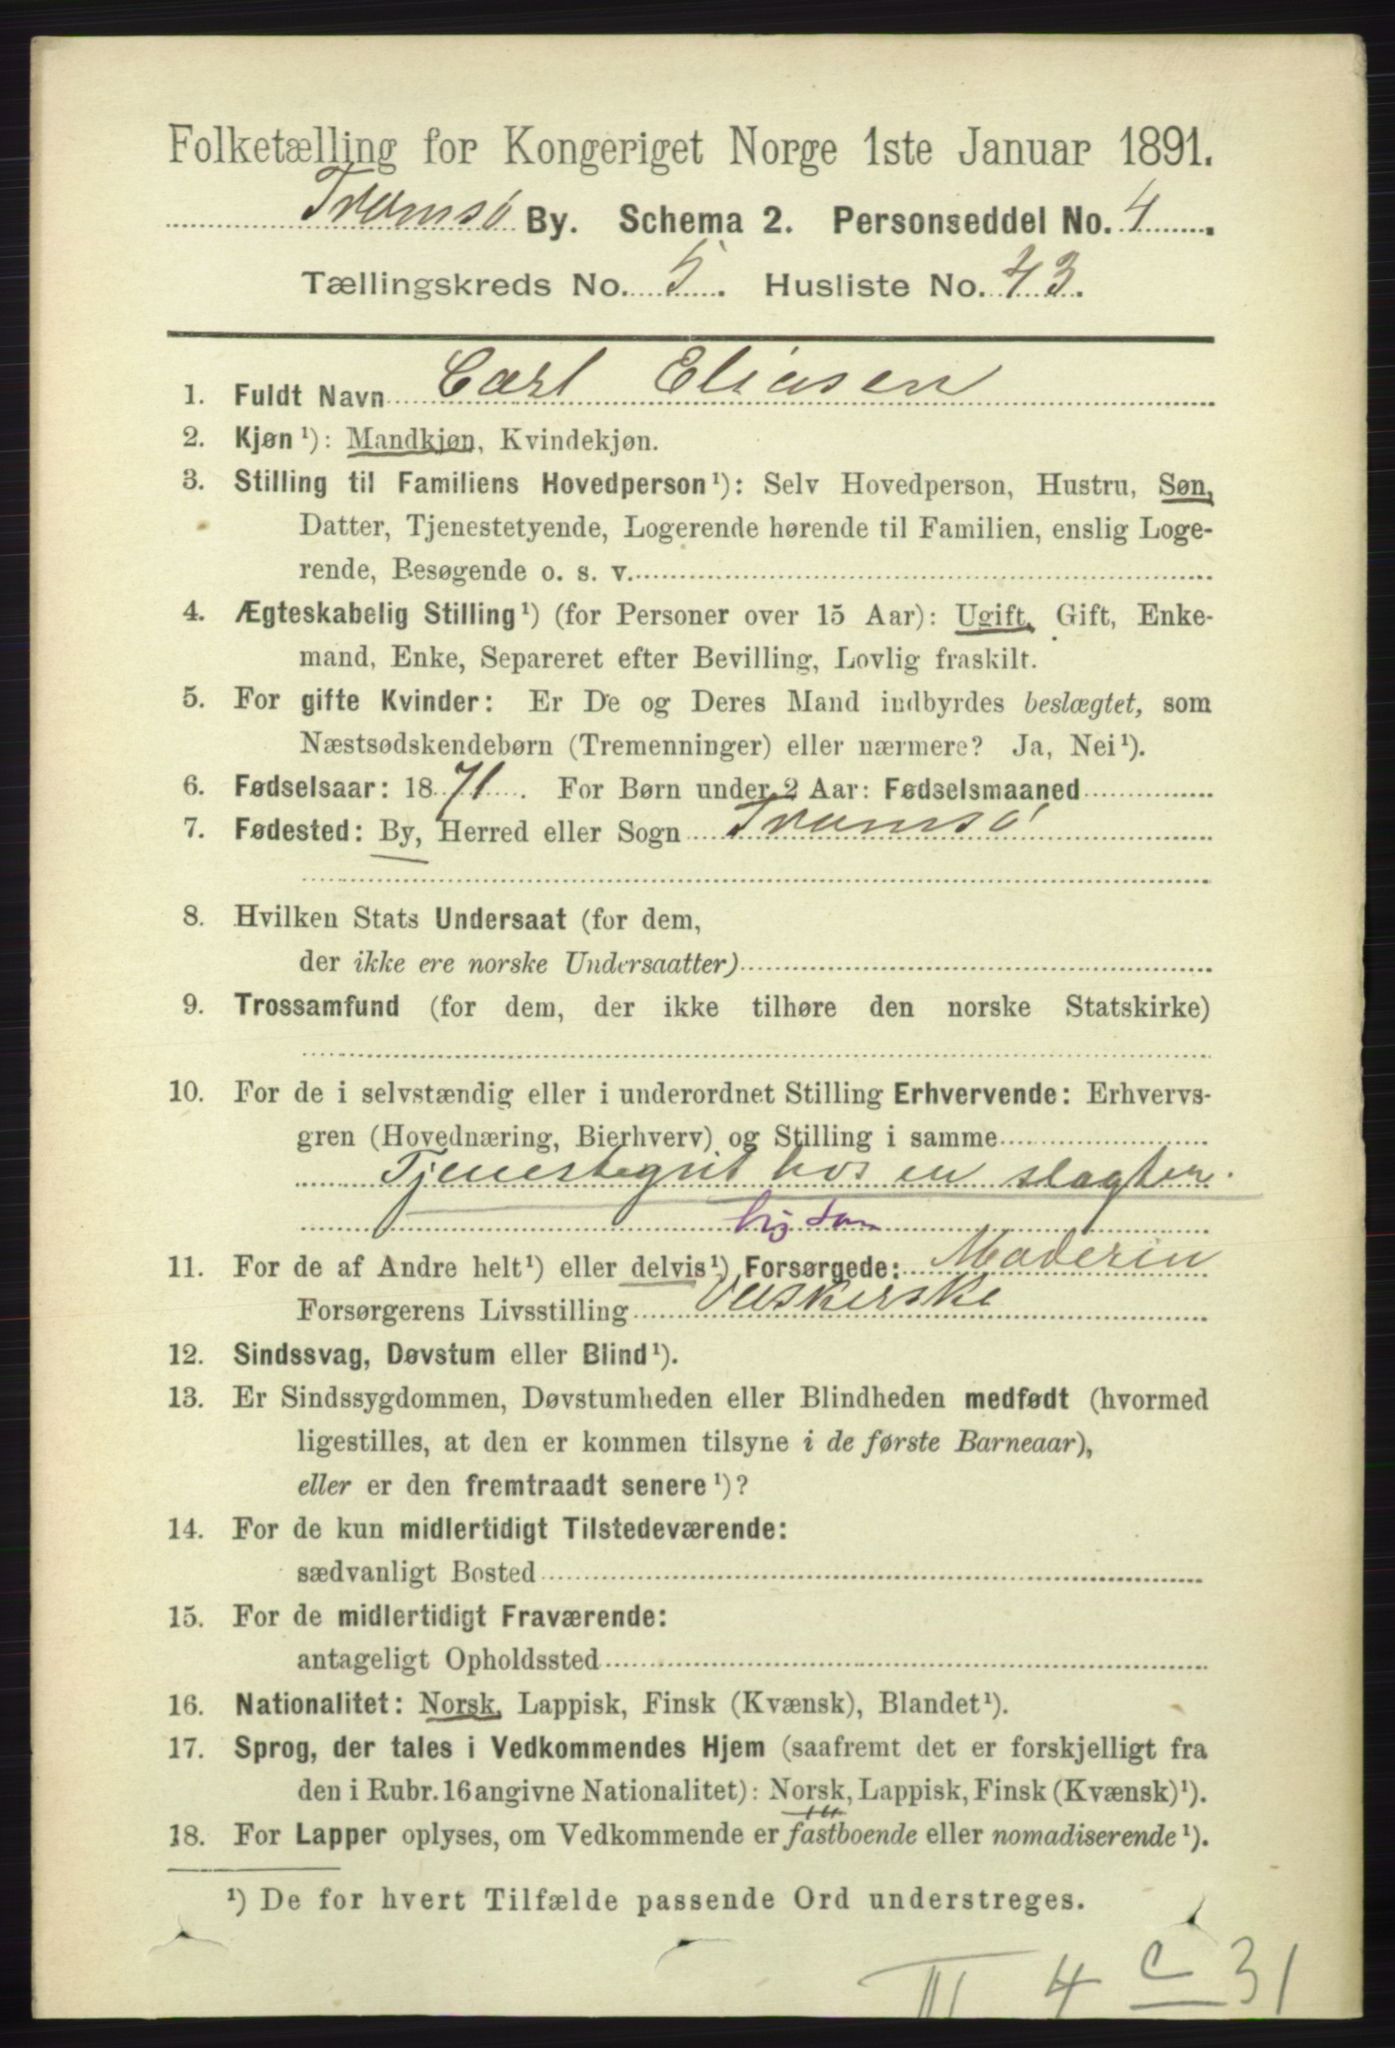 Folketælling for Kongeriget Norge 1ste Januar 1891.
Tromsø By. Schema 2. Personseddel No. 4.
Tællingskreds No. 5. Husliste No. 43.
1. Fuldt Navn Carl Eliasen
2. Kjøn ¹): Mandkjøn, Kvindekjøn.
3. Stilling til Familiens Hovedperson¹): Selv Hovedperson, Hustru, Søn,
Datter, Tjenestetyende, Logerende hørende til Familien, enslig Loge-
rende, Besøgende o. s. v.
4. Ægteskabelig Stilling¹) (for Personer over 15 Aar): Ugift, Gift, Enke-
mand, Enke, Separeret efter Bevilling, Lovlig fraskilt.
5. For gifte Kvinder: Er De og Deres Mand indbyrdes beslægtet, som
Næstsødskendebørn (Tremenninger) eller nærmere? Ja, Nei¹).
6. Fødselsaar: 1871. For Børn under 2 Aar: Fødselsmaaned
7. Fødested: By, Herred eller Sogn Tromsø
8. Hvilken Stats Undersaat (for dem,
der ikke ere norske Undersaatter)
9. Trossamfund (for dem, der ikke tilhøre den norske Statskirke)
10. For de i selvstændig eller i underordnet Stilling Erhvervende: Erhvervs-
gren (Hovednæring, Bierhverv) og Stilling i samme
Tjenestegut hos en slagter.
11. For de af Andre helt¹) eller delvis¹) Forsørgede: Moderen
Forsørgerens Livsstilling Vaskerske
12. Sindssvag, Døvstum eller Blind¹).
13. Er Sindssygdommen, Døvstumheden eller Blindheden medfødt (hvormed
ligestilles, at den er kommen tilsyne i de første Barneaar),
eller er den fremtraadt senere ¹)?
14. For de kun midlertidigt Tilstedeværende:
sædvanligt Bosted
15. For de midlertidigt Fraværende:
antageligt Opholdssted
16. Nationalitet: Norsk, Lappisk, Finsk (Kvænsk), Blandet¹).
17. Sprog, der tales i Vedkommendes Hjem (saafremt det er forskjelligt fra
den i Rubr. 16 angivne Nationalitet): Norsk, Lappisk, Finsk (Kvænsk)¹).
18. For Lapper oplyses, om Vedkommende er fastboende eller nomadiserende¹).
¹) De for hvert Tilfælde passende Ord understreges.
III 4 c 31